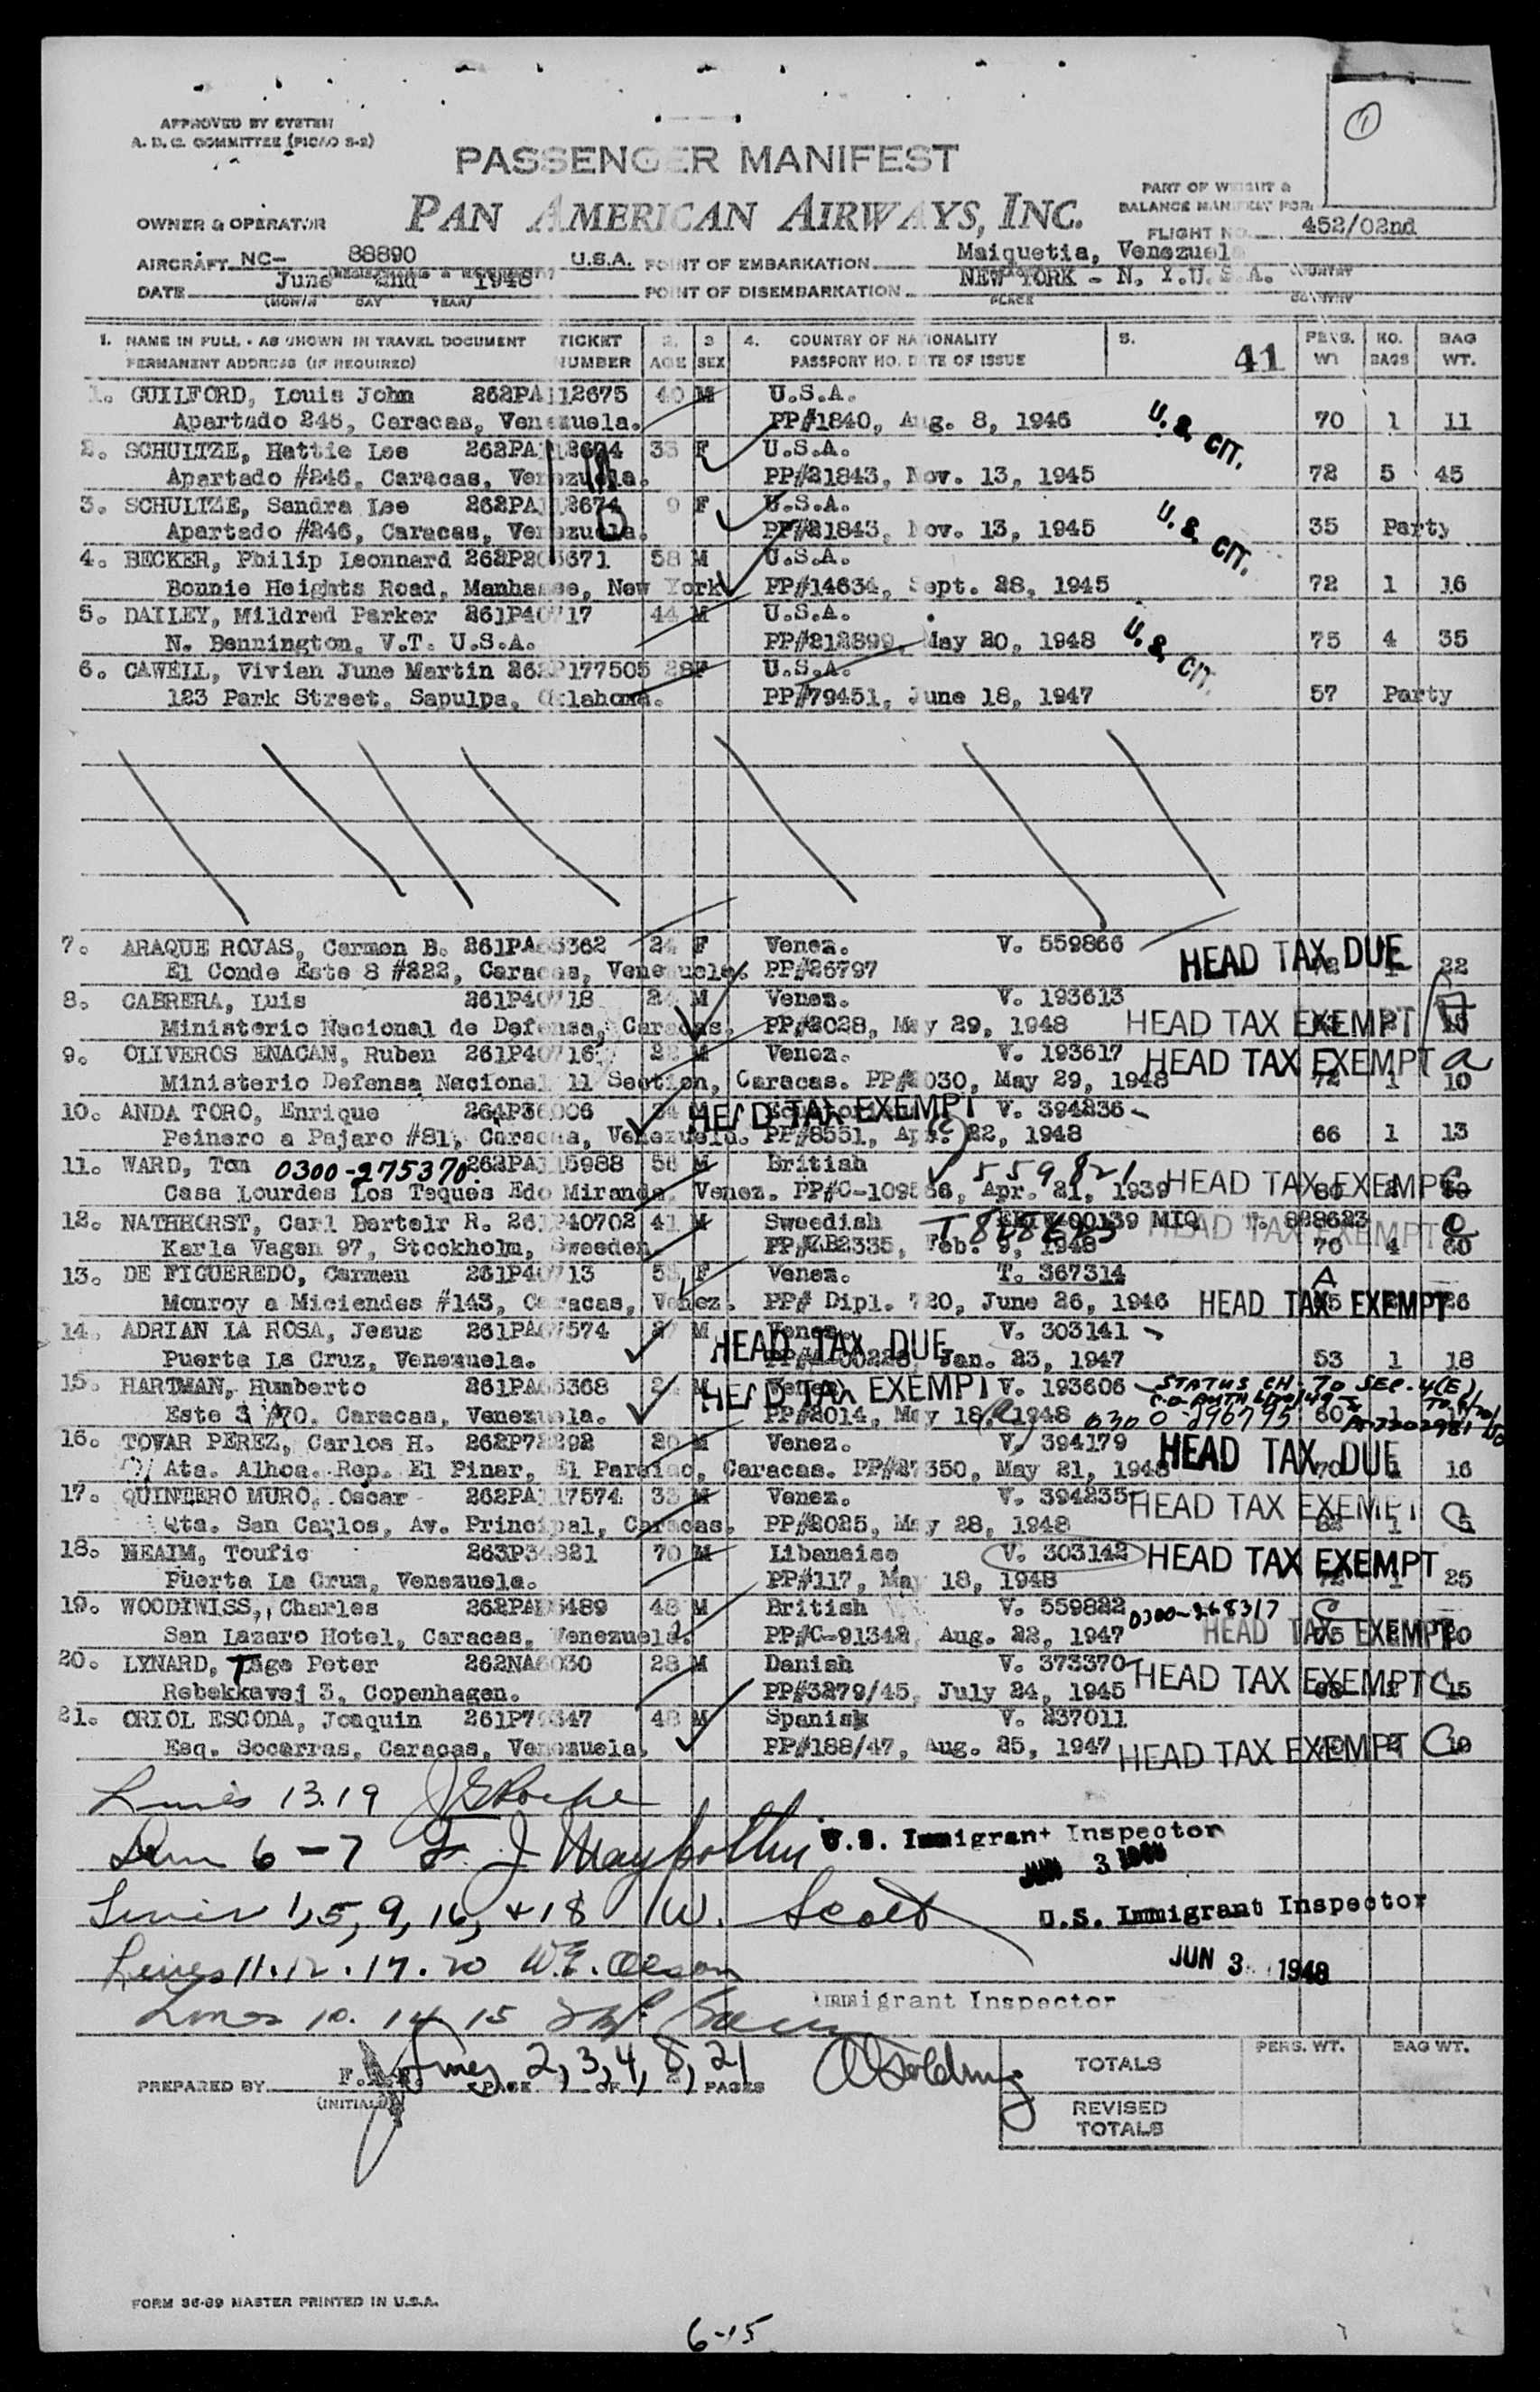 ①
APPROVED BY SYSTEM
A. D. C. COMMITTEE (PICAO S-2)
PASSENGER MANIFEST
PAN AMERICAN AIRWAYS, INC.
PART OF WEIGHT &
BALANCE MANIFEST FOR
OWNER & OPERATOR
FLIGHT NO. 452/02nd
AIRCRAFT NC- 88890 U.S.A. POINT OF EMBARKATION Maiquetia, Venezuel
DATE June 2nd 1948 POINT OF DISEMBARKATION NEW YORK - N. Y. U.S.A. COUNTRY
(MONTH DAY YEAR) PLACE COUNTRY
1. NAME IN FULL - AS SHOWN IN TRAVEL DOCUMENT TICKET 2. 3 4. COUNTRY OF NATIONALITY 5. PERS. NO. BAG
PERMANENT ADDRESS (IF REQUIRED) NUMBER AGE SEX PASSPORT NO. DATE OF ISSUE 41 WT BAGS WT.
1. GUILFORD, Louis John 262PA112675 40 M U.S.A.
Apartado 246, Caracas, Venezuela. PP#1840, Aug. 8, 1946 U.S. CIT. 70 1 11
2. SCHULTZE, Hattie Lee 262PA112674 35 F U.S.A.
Apartado #246, Caracas, Venezuela. PP#21843, Nov. 13, 1945 72 5 45
3. SCHULTZE, Sandra Lee 262PA112674 9 F U.S.A.
Apartado #246, Caracas, Venezuela. PP#21843, Nov. 13, 1945 U.S. CIT. 35 Party
4. BECKER, Philip Leonnard 262P203671 58 M U.S.A.
Bonnie Heights Road, Manhassee, New York PP#14634, Sept. 28, 1945 72 1 16
5. DAILEY, Mildred Parker 261P40717 44 M U.S.A.
N. Bennington, V.T. U.S.A. PP#212899, May 20, 1948 U.S. CIT. 75 4 35
6. CAWELL, Vivian June Martin 262P177505 28 F U.S.A.
123 Park Street, Sapulpa, Oklahoma. PP#79451, June 18, 1947 57 Party
7. ARAQUE ROJAS, Carmen B. 261PA65362 24 F Venez. V. 559866
El Conde Este 8 #222, Caracas, Venezuela. PP#26797 HEAD TAX DUE 22
8. CABRERA, Luis 261P40718 M Venez. V. 193613
Ministerio Nacional de Defensa, Caracas. PP#2028, May 29, 1948 HEAD TAX EXEMPT
9. OLIVEROS ENACAN, Ruben 261P40716 22 M Venez. V. 193617 HEAD TAX EXEMPT a
Ministerio Defensa Nacional 11 Section, Caracas. PP#2030, May 29, 1948 72 1 10
10. ANDA TORO, Enrique 264P36006 34 M HEAD TAX EXEMPT V. 394836
Peinero a Pajaro #81, Caracas, Venezuela. PP#8551, Apr. 22, 1948 66 1 13
11. WARD, Tom 0300-275370 262PA115988 56 M British 559821
Casa Lourdes Los Teques Edo Miranda, Venez. PP#C-109566, Apr. 21, 1939 HEAD TAX EXEMPT
12. NATHHORST, Carl Bertelr R. 261P40702 41 M Sweedish T 828623 00139 MIQ T. 828623
Karla Vagen 97, Stockholm, Sweeden. PP#ZB2335, Feb. 9, 1948 HEAD TAX EXEMPT 70 4 60
13. DE FIGUEREDO, Carmen 261P40713 53 F Venez. T. 367314 A
Monroy a Miciendes #143, Caracas, Venez. PP# Dipl. 720, June 26, 1946 HEAD TAX EXEMPT 26
14. ADRIAN LA ROSA, Jesus 261PA67574 27 M Venez. V. 303141
HEAD TAX DUE
Puerta La Cruz, Venezuela. Jan. 23, 1947 53 1 18
15. HARTMAN, Humberto 261PA65368 M HEAD TAX EXEMPT V. 193606 STATUS CH. TO SEC. 4(E)
Este 3 #70, Caracas, Venezuela. PP#2014, May 18, 1948 0300-296795 60 1 A-7202981
16. TOVAR PEREZ, Carlos H. 262P72292 20 M Venez. V. 394179
Ata. Alhoa. Rep. El Pinar, El Paraiso, Caracas. PP#27350, May 21, 1948 HEAD TAX DUE 70 16
17. QUINTERO MURO, Oscar 262PA117574 33 M Venez. V. 394235
Qta. San Carlos, Av. Principal, Caracas. PP#2025, May 28, 1948 HEAD TAX EXEMPT
18. NEAIM, Toufic 263P34821 70 M Libanaise V. 303142 HEAD TAX EXEMPT
Puerta La Cruz, Venezuela. PP#117, May 18, 1948 72 1 25
19. WOODIWISS, Charles 262PA 5489 48 M British V. 559822 0300-268317
San Lazaro Hotel, Caracas, Venezuela. PP#C-91342, Aug. 22, 1947 HEAD TAX EXEMPT 20
20. LYNARD, Tage Peter 262NA6030 28 M Danish V. 373370
Rebekkavej 3, Copenhagen. PP#3279/45, July 24, 1945 HEAD TAX EXEMPT C 15
21. ORIOL ESCODA, Joaquin 261P79347 48 M Spanish V. 237011
Esq. Socarras, Caracas, Venezuela. PP#188/47, Aug. 25, 1947 HEAD TAX EXEMPT C 10
Lines 13.19
6-7 F. J. U.S. Immigrant Inspector
JUN 3 1948
Lines 1,5,9,16, + 18 W. Scott U.S. Immigrant Inspector
Lines 11.12.17.20 W.E. Olson JUN 3 1948
Lines 10. 14 15 Immigrant Inspector
PREPARED BY F. Lines 2,3,4,8,21 PAGE OF PAGES
(INITIALS)
PERS. WT. BAG WT.
TOTALS
REVISED
TOTALS
FORM 36-69 MASTER PRINTED IN U.S.A.
6-15